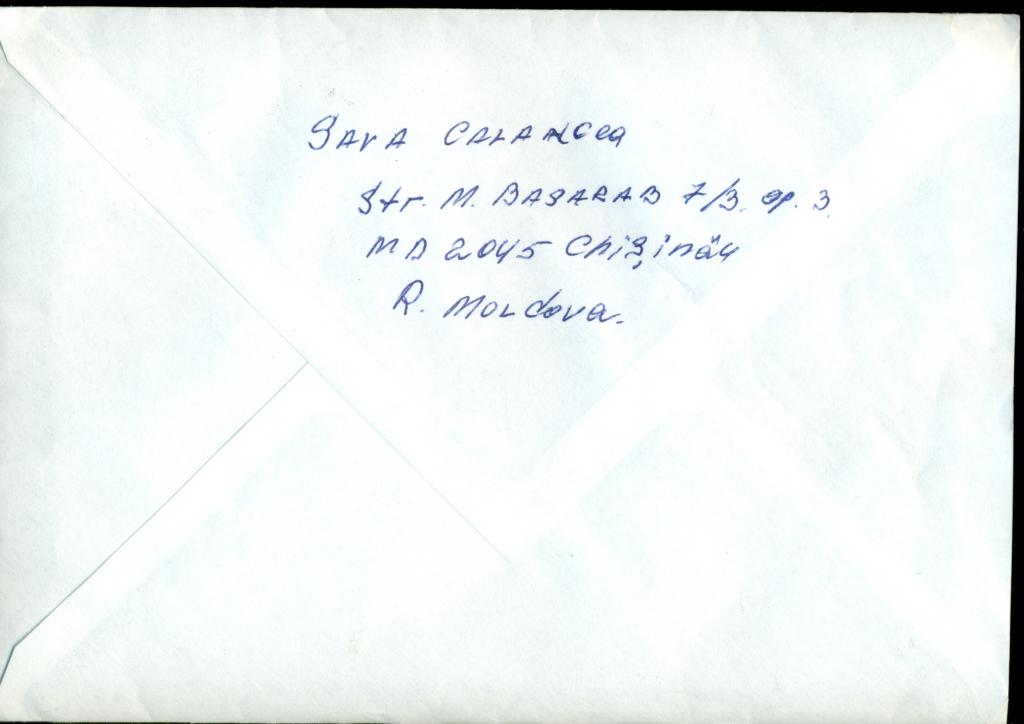 SAVA CALANCEA
Str. M. BASARAB 7/3. ap. 3.
MD 2045 Chişinău
R. MOLdova.